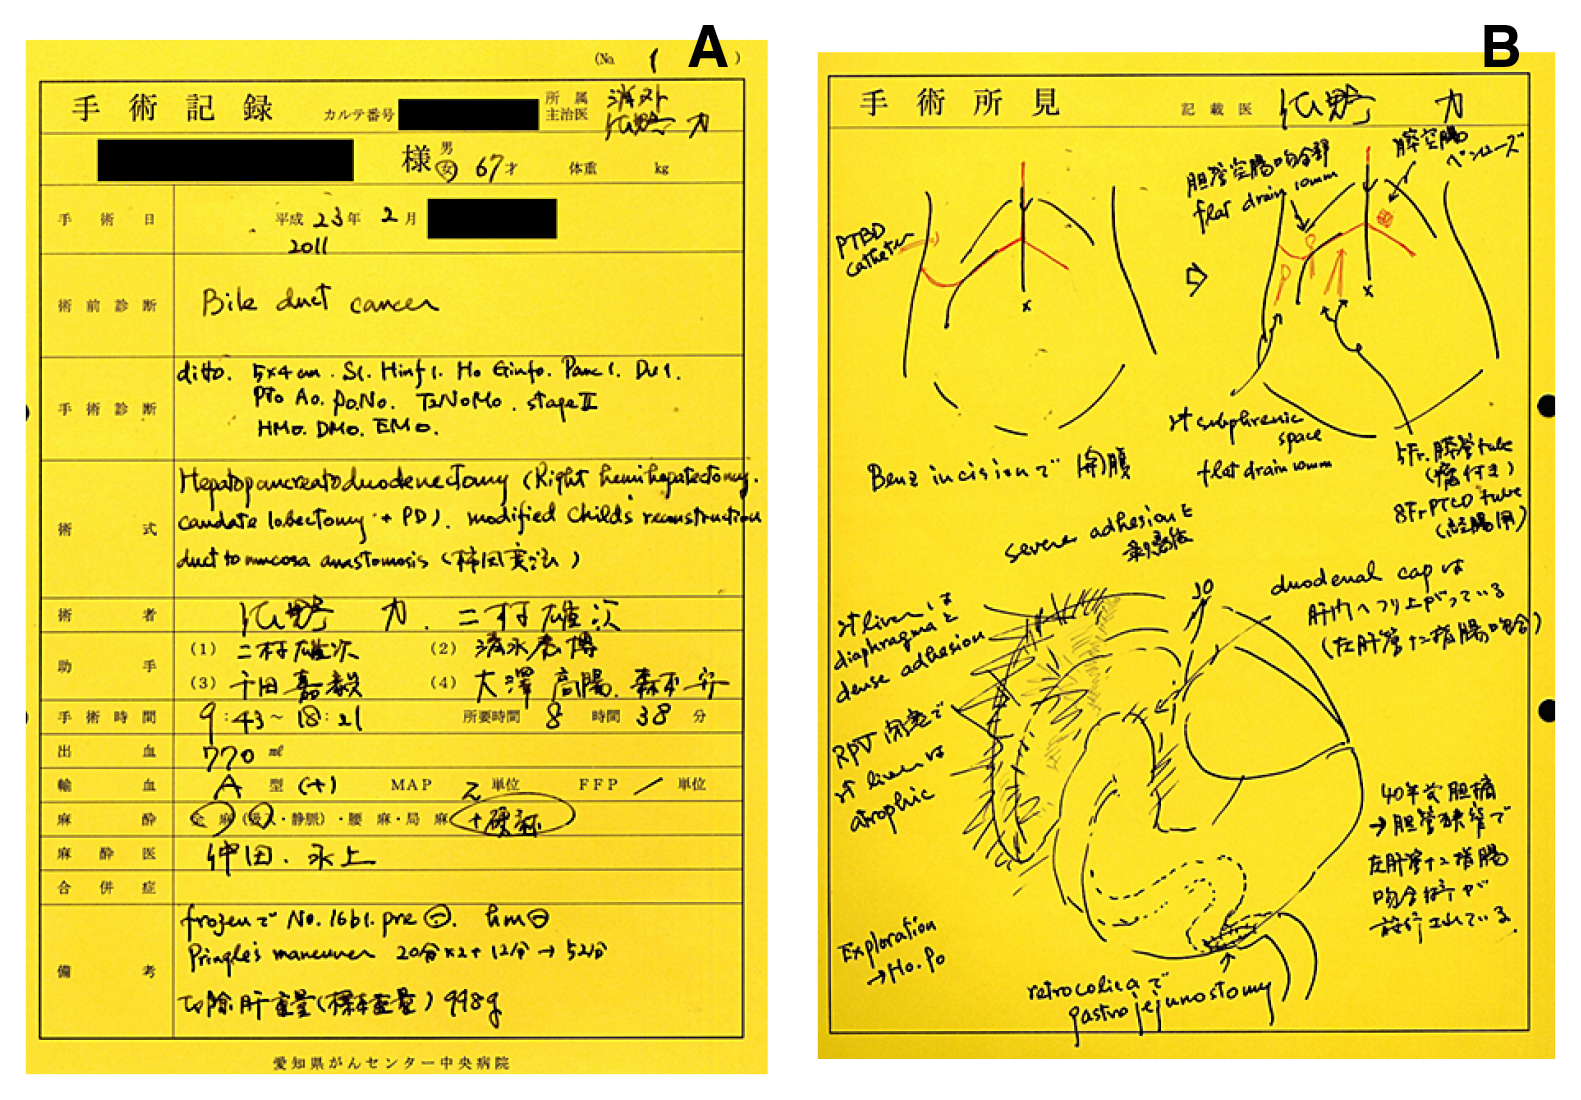 A
(No. 1)
手術記録 カルテ番号 所属 消外
主治医 佐野 力
様 男 女 67才 体重 kg
手術日 平成23年2月
2011
術前診断 Bile duct cancer
手術診断 ditto. 5×4cm. S1. Hinf1. H0 Ginf0. Panc1. Du1.
PV0 A0. P0. N0. T3N0M0. stage II
HM0. DM0. EM0.
術式 Hepatopancreatoduodenectomy (Right hemihepatectomy.
caudate lobectomy + PD). modified Child's reconstruction
duct to mucosa anastomosis (柿田変法)
術者 佐野 力. 二村雄次
助手 (1) 二村雄次 (2) 清水泰博
(3) 千田嘉毅 (4) 大澤高陽. 森本守
手術時間 9:43~18:21 所要時間 8時間38分
出血 770 ml
輸血 A型(+) MAP 2単位 FFP / 単位
麻酔 全麻(吸入・静脈)・腰麻・局麻 +硬麻
麻酔医 仲田. 水上
合併症
備考 frozenで No. 16b1. pre ⊖. hm ⊖
Pringle's maneuver 20分×2+12分→52分
切除肝重量(標本重量) 998g
愛知県がんセンター中央病院
B
手術所見 記載医 佐野 力
胆管空腸吻合部
flat drain 10mm
膵空腸
ペンローズ
PTBD
catheter
Benz incisionで開腹
rt subphrenic
space
flat drain 10mm
5Fr. 膵管tube
(瘤付き)
8Fr PTCD tube
(空腸用)
severe adhesionと
duodenal capは
肝内へつり上がっている
(左肝管十二指腸吻合)
JO
rt liverは
diaphragmaと
dense adhesion
RPV閉塞で
rt liverは
atrophic
40年前胆摘
→胆管狭窄で
左肝管十二指腸
吻合術が
施行されている.
Exploration
→H0. P0
retrocolicaで
gastrojejunostomy